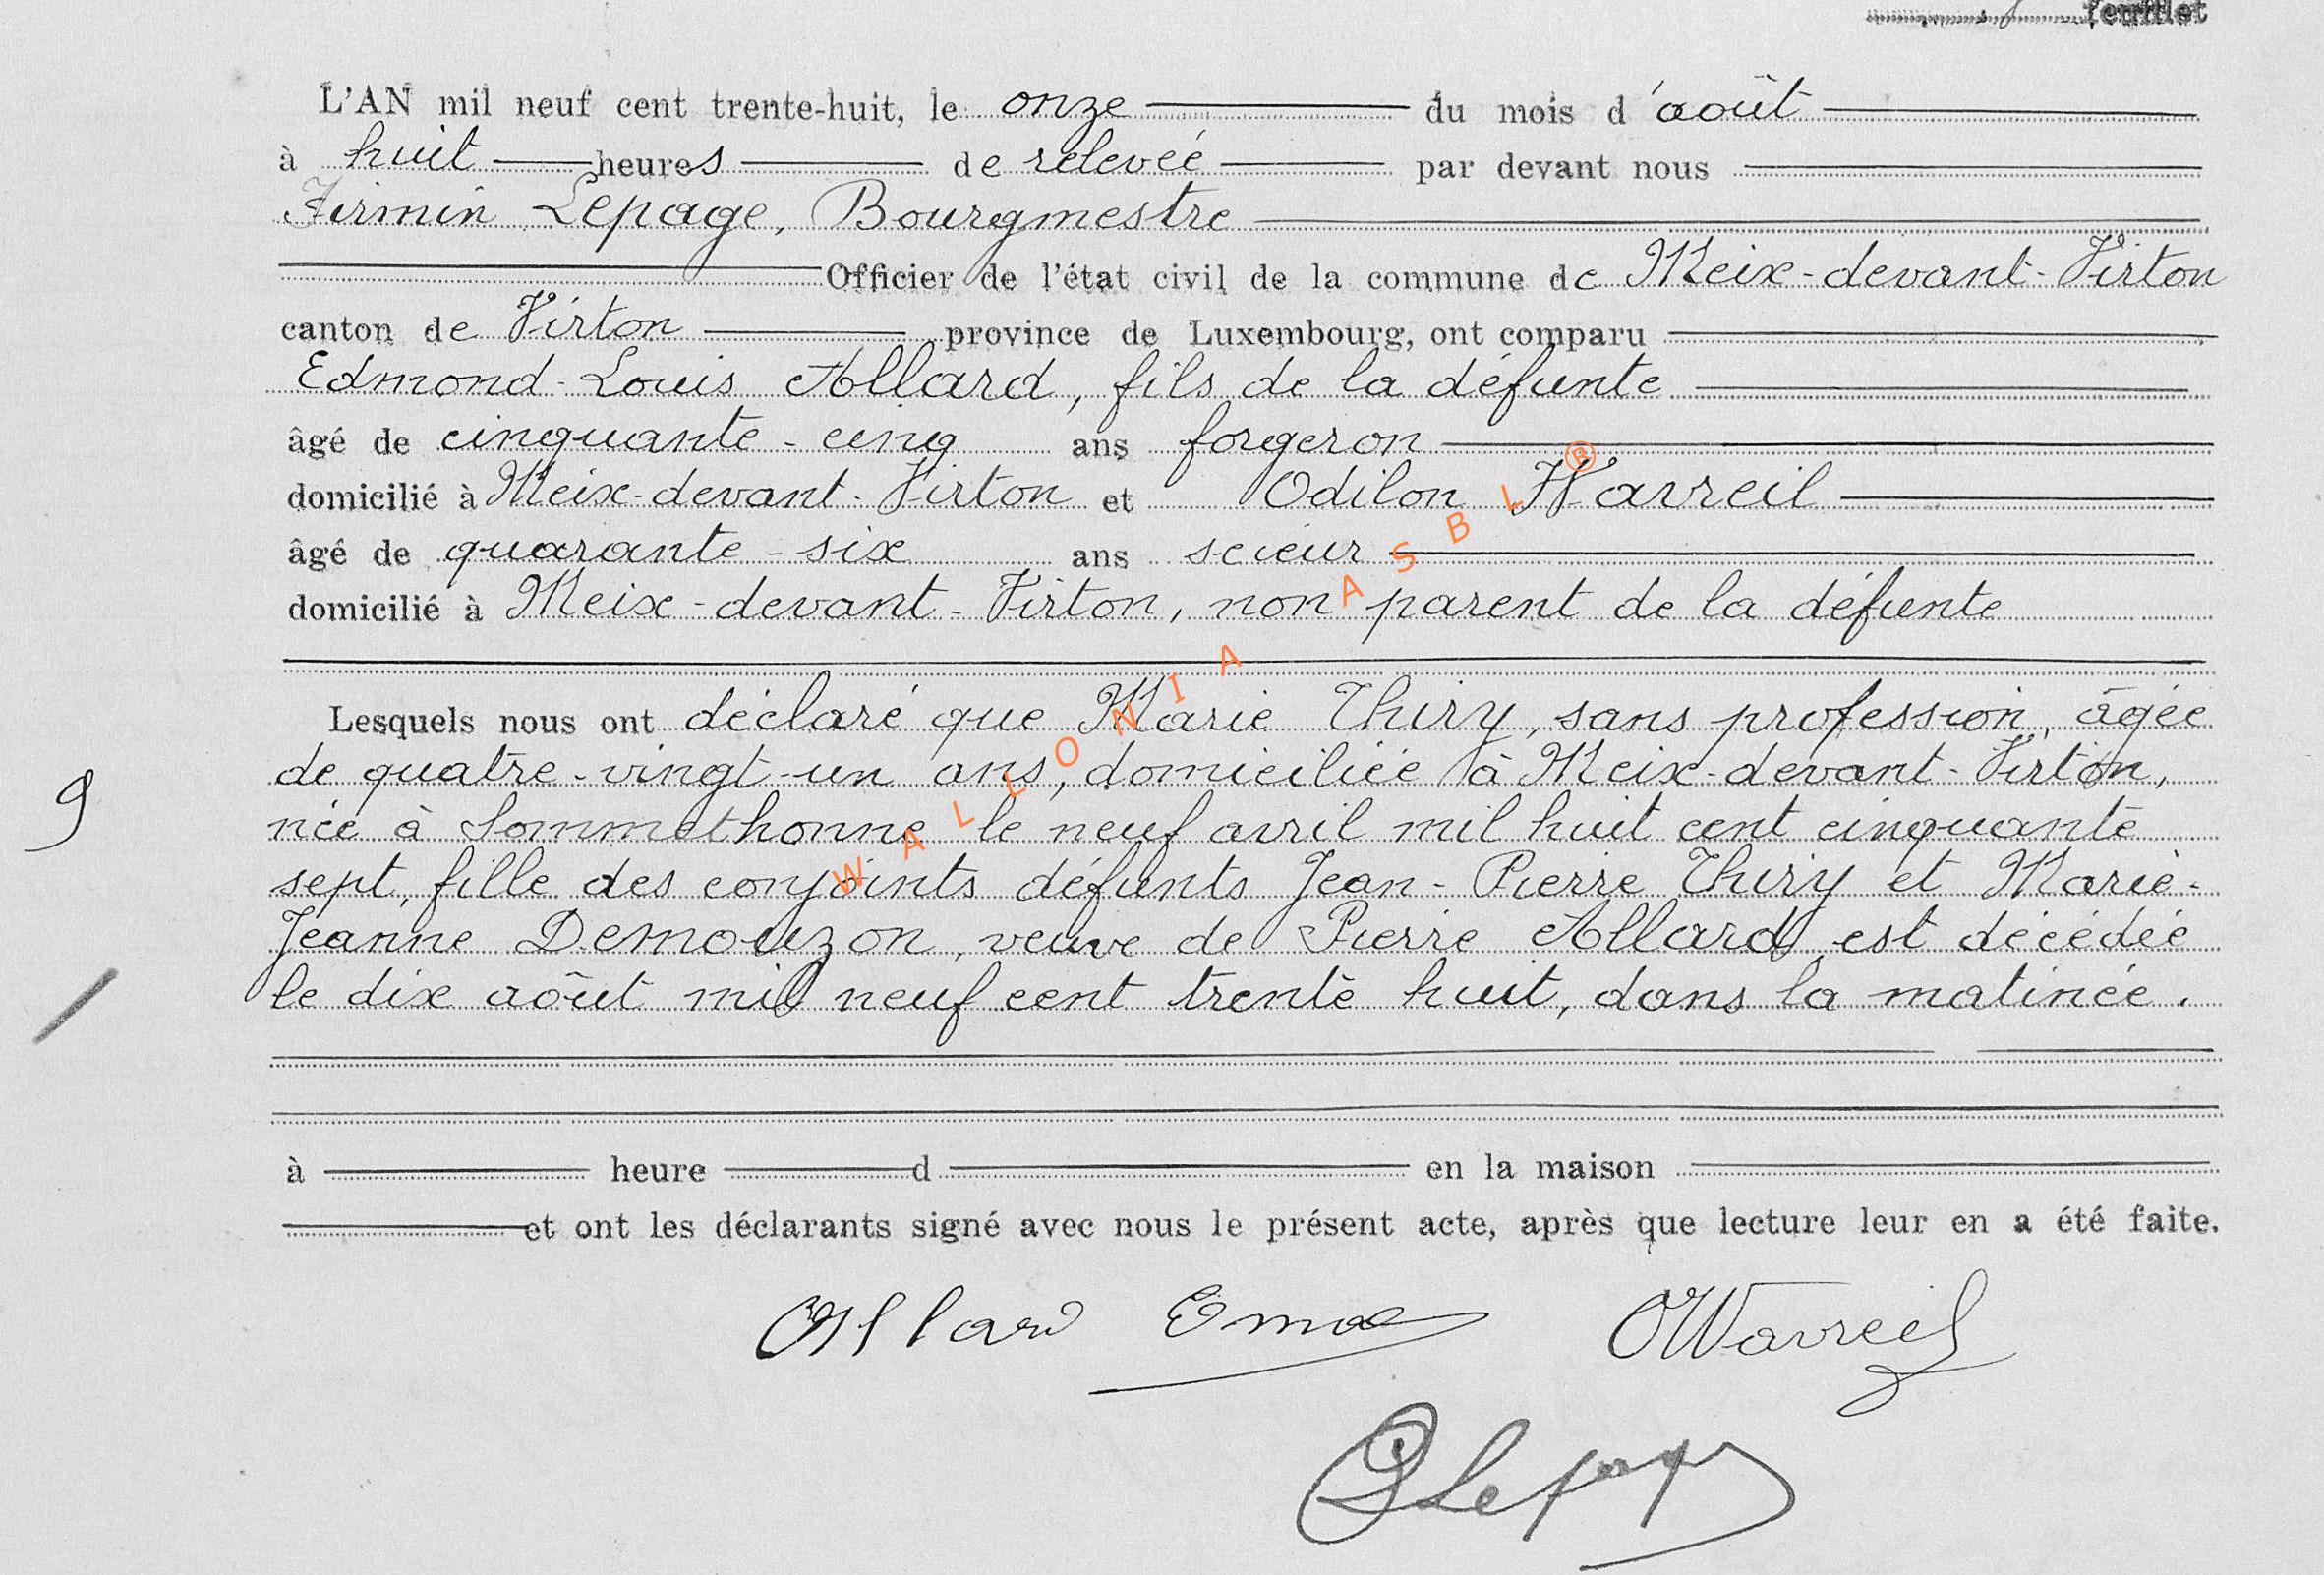 feuillet
L'AN mil neuf cent trente-huit, le onze du mois d'août
à huit heures de relevée par devant nous
Firmin Lepage, Bourgmestre
Officier de l'état civil de la commune de Meix-devant-Virton
canton de Virton province de Luxembourg, ont comparu
Edmond-Louis Allard, fils de la défunte
âgé de cinquante-cinq ans forgeron
domicilié à Meix-devant-Virton et Odilon Wavreil
âgé de quarante-six ans scieur
domicilié à Meix-devant-Virton, non parent de la défunte
Lesquels nous ont déclaré que Marie Thiry, sans profession, âgée
de quatre-vingt-un ans, domiciliée à Meix-devant-Virton,
9
née à Sommethonne le neuf avril mil huit cent cinquante
sept, fille des conjoints défunts Jean-Pierre Thiry et Marie-
Jeanne Demouzon, veuve de Pierre Allard, est décédée
le dix août mil neuf cent trente huit, dans la matinée.
à heure d en la maison
et ont les déclarants signé avec nous le présent acte, après que lecture leur en a été faite.
Allard Emd OWavreil
Lepage
WALLONIA ASBL ®